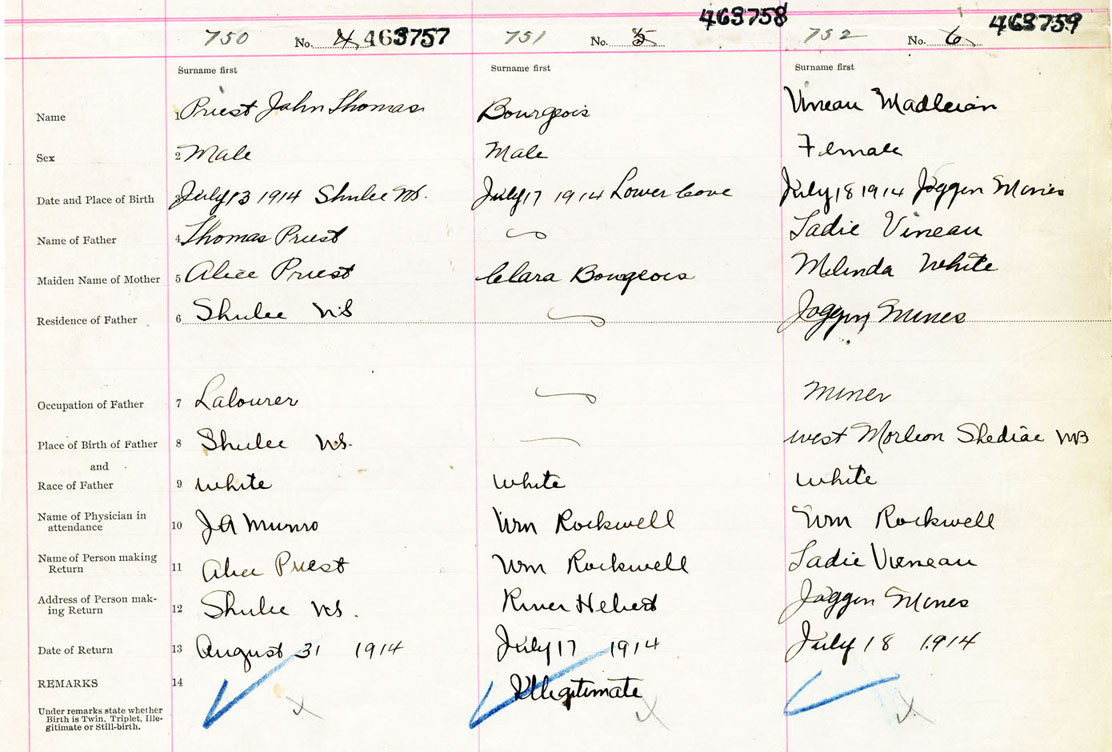 750 No. 4 463757 751 No. 5 463758 752 No. 6 463759
Surname first Surname first Surname first
Name 1 Priest John Thomas Bourgeois Vineau
Sex 2 Male Male Female
Date and Place of Birth 3 July 13 1914 Shulee NS. July 17 1914 Lower Cove July 18 1914 Joggin Mines
Name of Father 4 Thomas Priest Sadie Vineau
Maiden Name of Mother 5 Alice Priest Clara Bourgeois Melinda White
Residence of Father 6 Shulee NS Joggin Mines
Occupation of Father 7 Labourer Miner
Place of Birth of Father 8 Shulee NS. West Shediac NB
and
Race of Father 9 White White White
Name of Physician in
attendance 10 J A Munro Wm Rockwell Wm Rockwell
Name of Person making
Return 11 Alice Priest Wm Rockwell Sadie Vieneau
Address of Person mak-
ing Return 12 Shulee NS. River Hebert Joggin Mines
Date of Return 13 August 31 1914 July 17 1914 July 18 1914
REMARKS 14 Illegitimate
Under remarks state whether
Birth is Twin, Triplet, Ille-
gitimate or Still-birth.